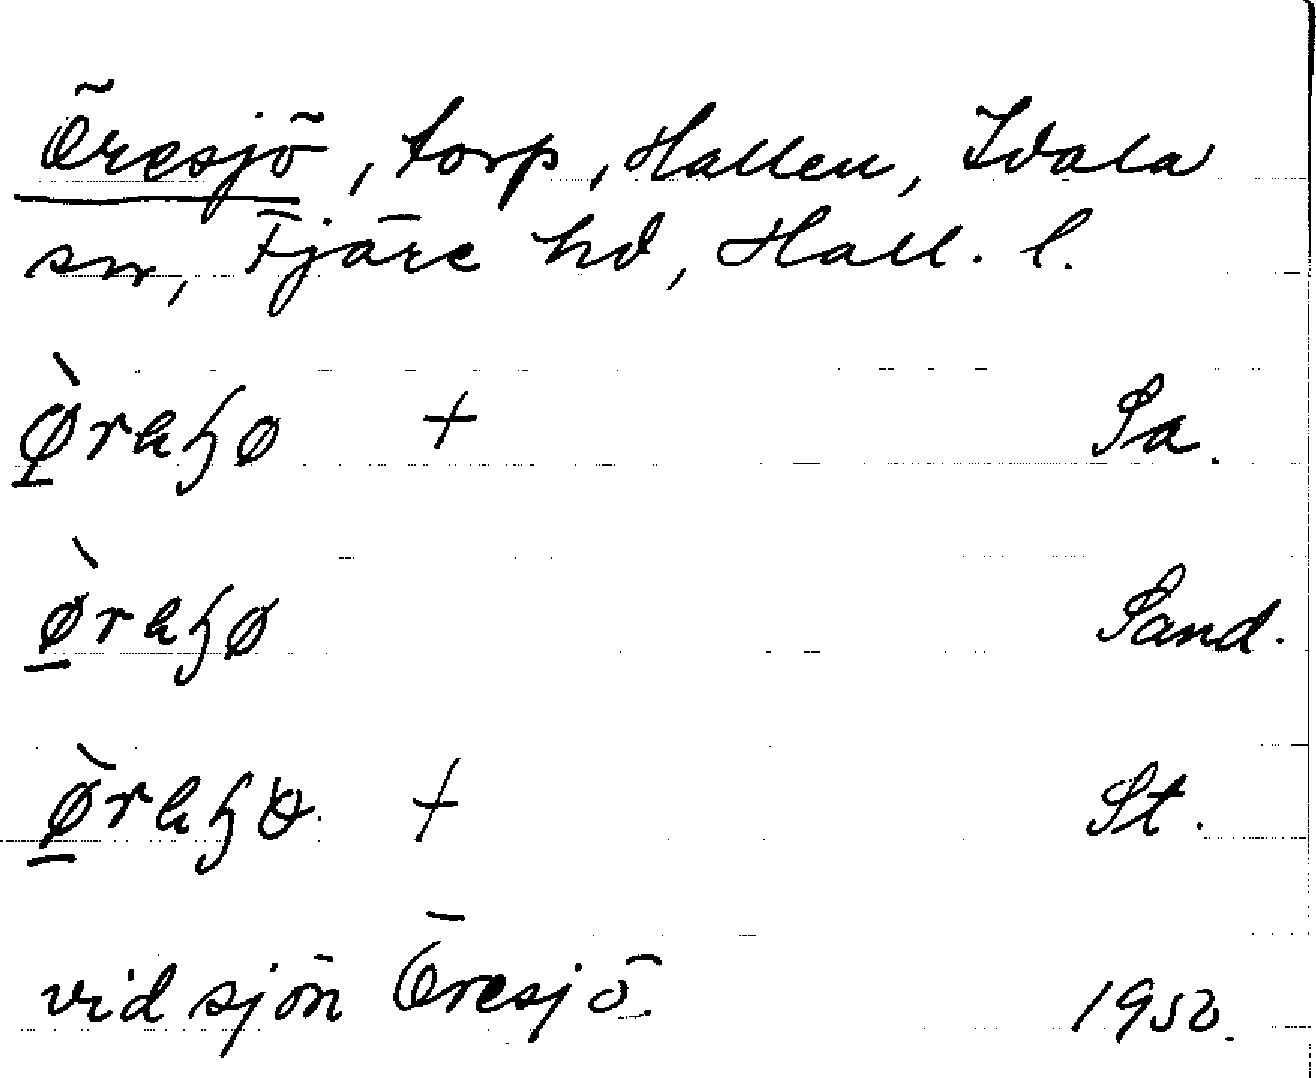 Öresjö, torp, Hallen, Idala
sn, Fjäre hd, Hall. l.
+ Sa.
Sand.
+ St.
vid sjön Öresjö. 1950.